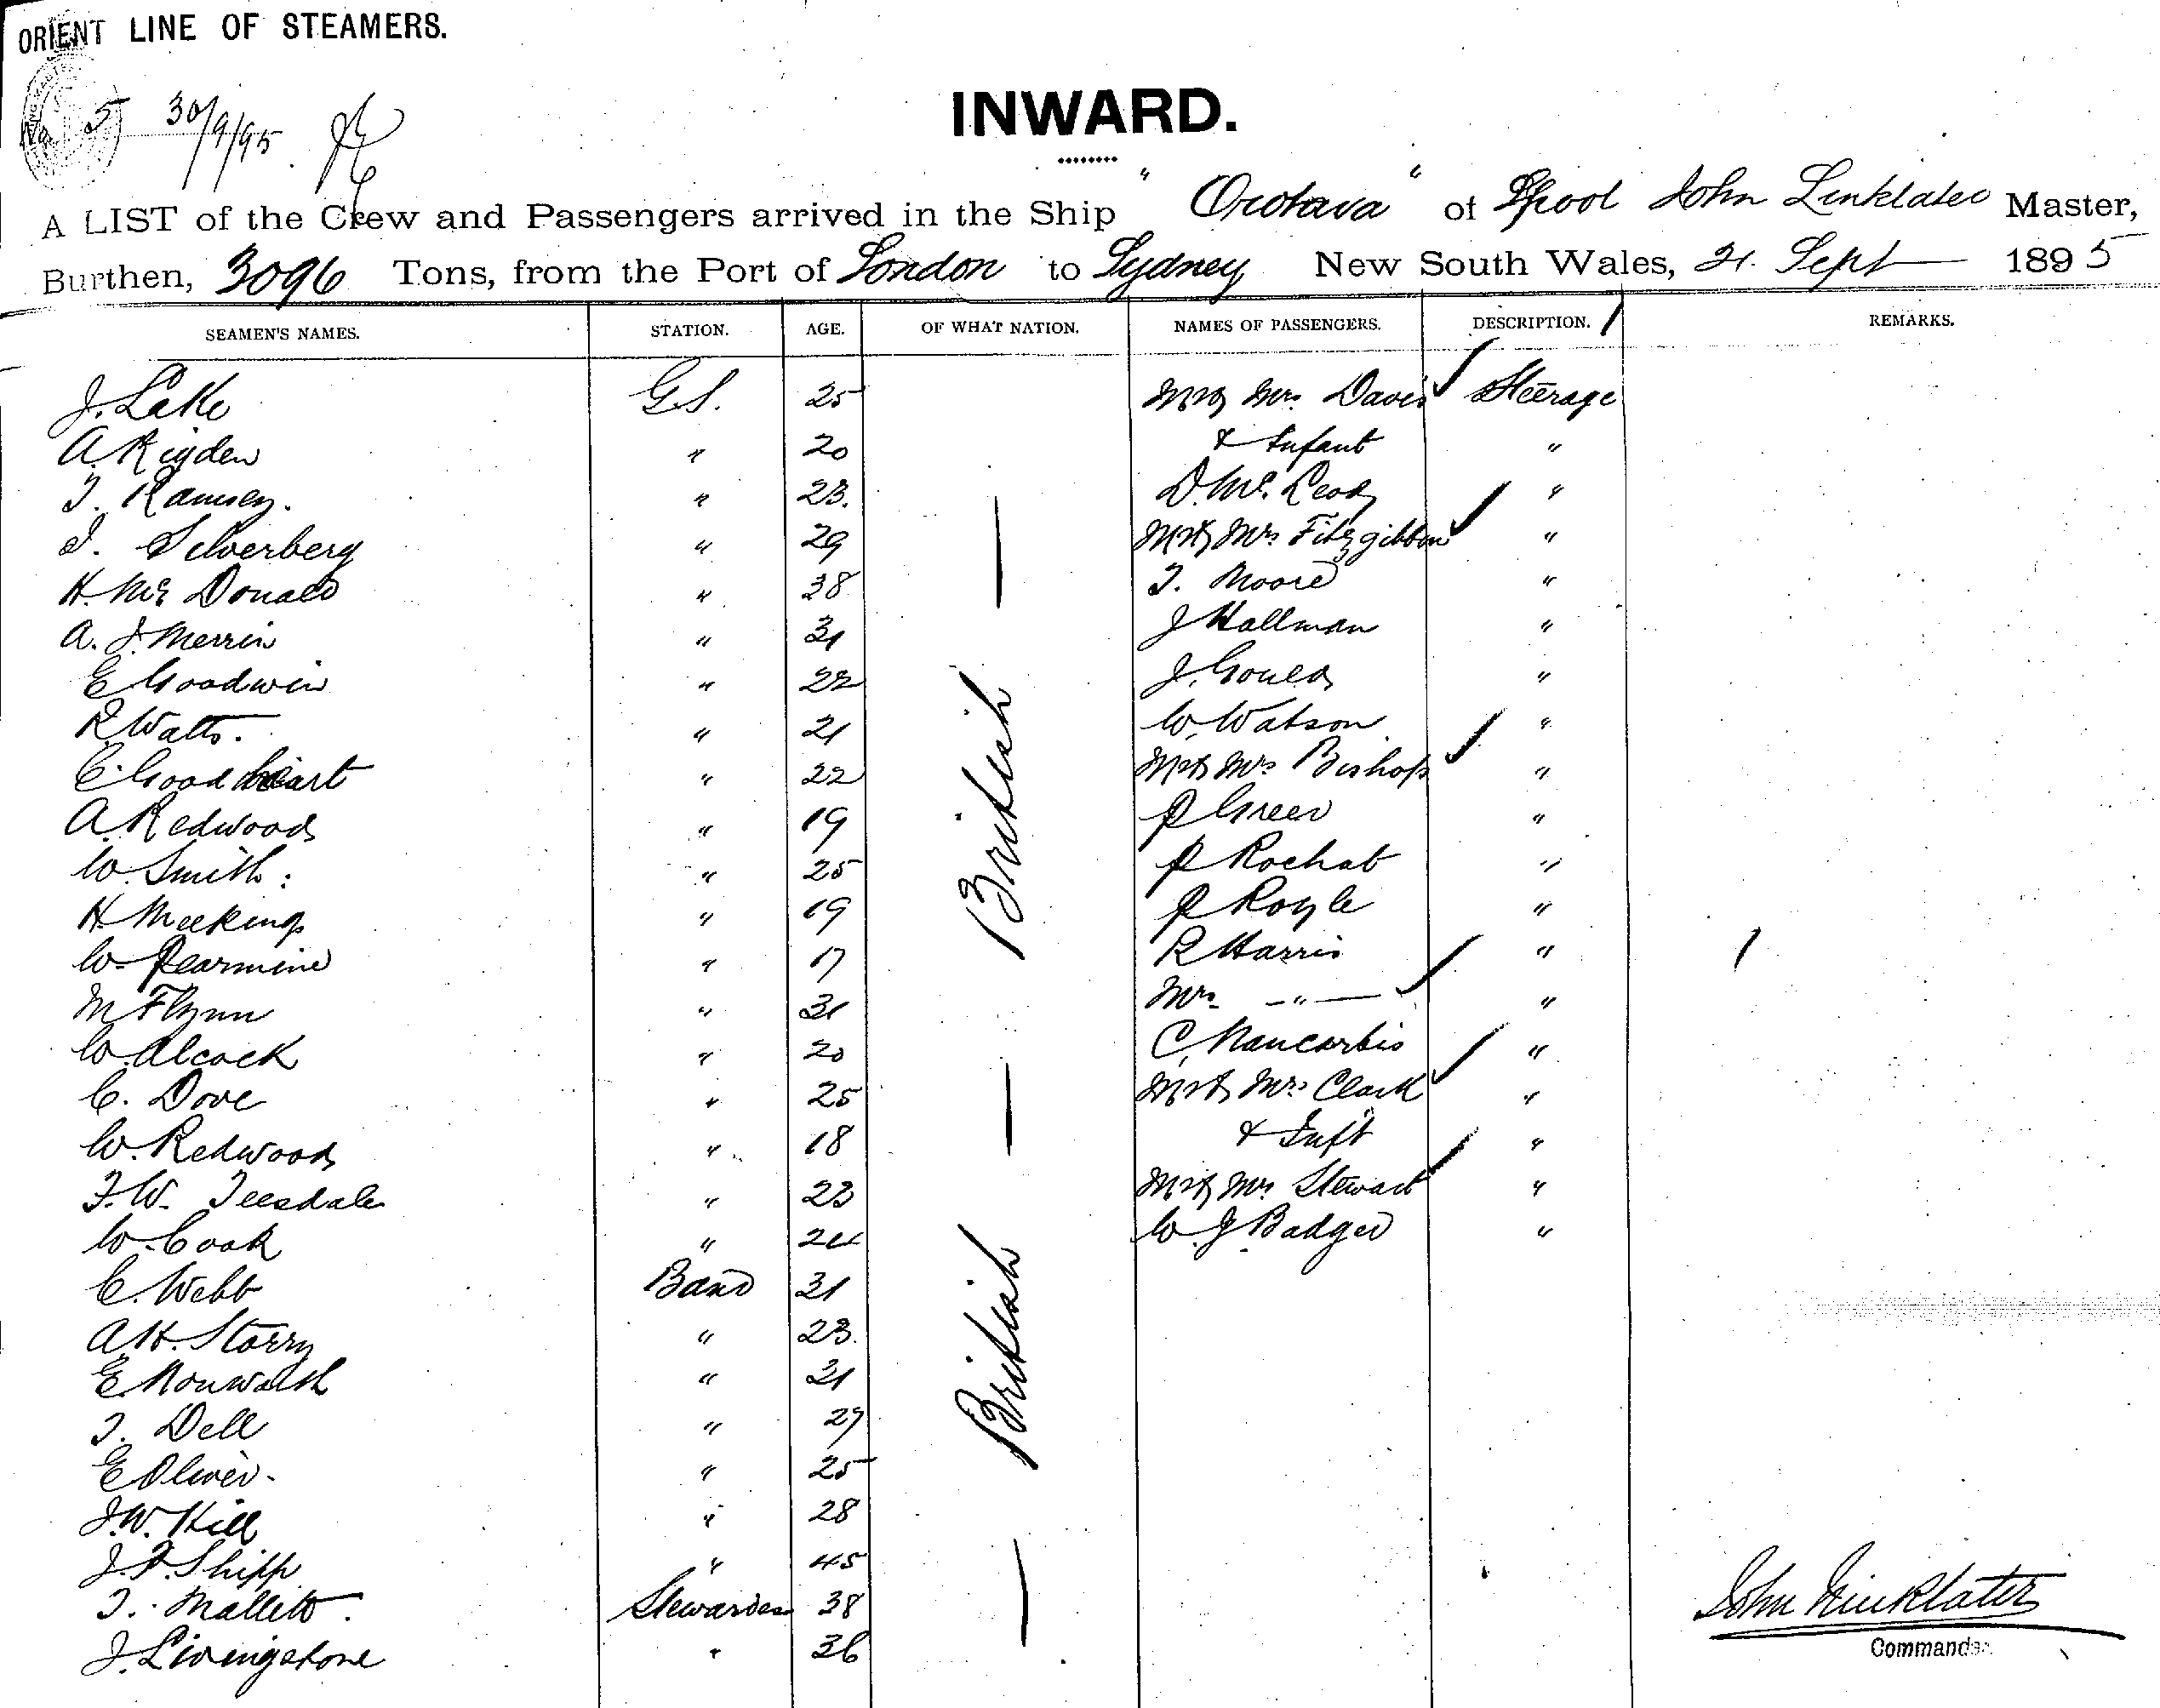 ORIENT LINE OF STEAMERS.
No. 5 30/9/95
INWARD.
A LIST of the Crew and Passengers arrived in the Ship " Orotava " of L'pool John Linklater Master,
Burthen, 3096 Tons, from the Port of London to Sydney New South Wales, 21. Sept 1895
SEAMEN'S NAMES. STATION. AGE. OF WHAT NATION. NAMES OF PASSENGERS. DESCRIPTION. REMARKS.
J. Lake G.S. 25 Mr & Mrs. Davis Steerage
A. Rigden " 20 & Infant "
T. Ramsey. " 23. D. Mc. Leod "
I. Silverberg " 29 Mr & Mrs Fitzgibbon "
H. Mc Donald " 38 T. Moore "
A. J. Merrin " 31 J Hallman "
E Goodwin " 22 J. Gould "
R. Watts. " 21 W. Watson "
C. Goodheart " 22 Mr & Mrs Bishop "
A. Redwood " 19 P Greer "
W. Smith: " 25 P Rochat "
H. Meekings " 19 P Royle "
W. Pearmine " 17 R Harris "
M Flynn " 31 Mrs — " — "
W. Alcock " 20 C. "
C. Dove " 25 Mr & Mrs Clark "
W. Redwood " 18 & Inft "
F. W. Teesdale " 23 Mr & Mrs Stewart "
W. Cook " 24 W. J Badger "
British
C. Webb Band 31
A. H. Storry " 23.
E " 31
T. Dell " 27
E Oliver. " 25
J. W. Hill " 28
J. T. Shipp " 45
T. Mallett. Stewardess 38
J. Livingstone " 36
British
John Linklater
Commander.